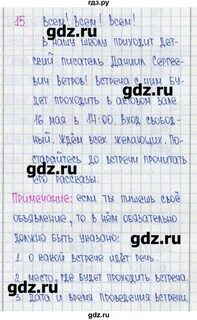 gdz.ru
15. Всем! Всем! Всем!
В нашу школу приходит дет-
ский писатель Даниил Сергее-
вич Ветров! Встреча с ним бу-
дет проходить в актовом зале
gdz.ru gdz.ru
16 мая в 14:00. Вход свобод-
ный. Ждём всех желающих. По-
старайтесь до встречи прочитать
его рассказы.
gdz.ru gdz.ru
Примечание: если ты пишешь своё
объявление, то в нём обязательно
должно быть указано:
gdz.ru gdz.ru
1. О какой встрече идёт речь.
2. Место, где будет проходить встреча.
3. Дата и время проведения встречи.
gdz.ru